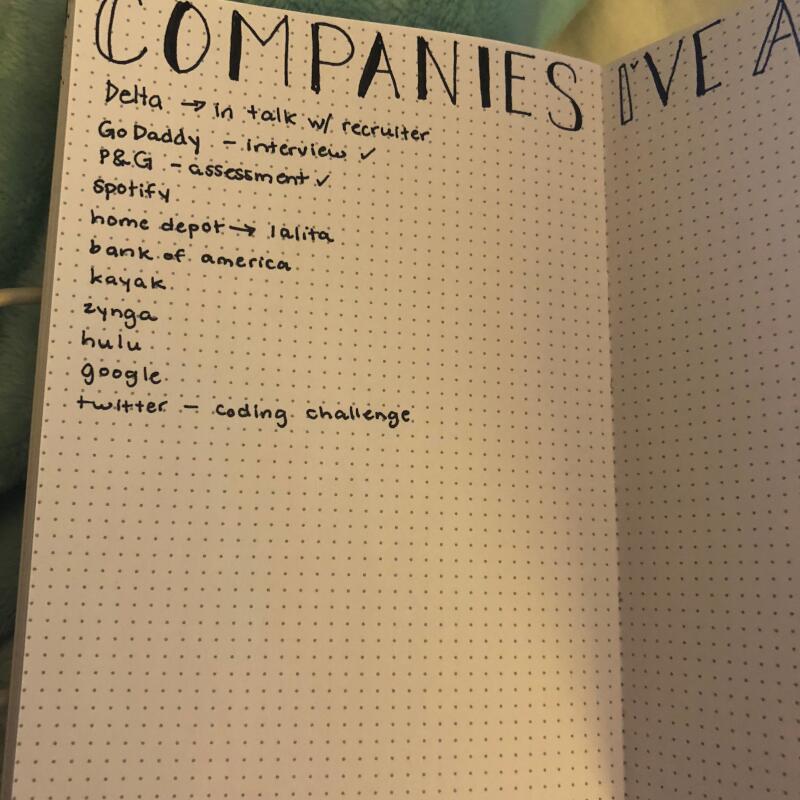 COMPANIES I'VE A
Delta → in talk w/ recruiter
GoDaddy - interview ✓
P&G - assessment ✓
spotify
home depot → lalita
bank of america
kayak
zynga
hulu
google
twitter - coding challenge